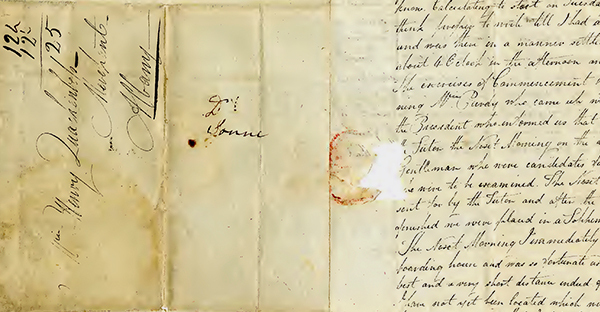 12½
12½
125
Henry Quackenboss
Merchant
Albany
Dr.
Tonne
know. Calculating to start on Tuesday
think
to wait till I had a
and was then in a manner settle
about 6 Oclock in the afternoon an
The exercises of Commencement
ning Mr. Purdy who came up w
the President who informed us that
a Tutor the Next Morning on the
Gentleman who were candidates
were to be examined. The Next
sent for by the Tutor and after the
finished we were placed in a Sophom
The Next Morning I immediately
boarding house and was so fortunate as
best and a very short distance indeed
I have not yet been located which